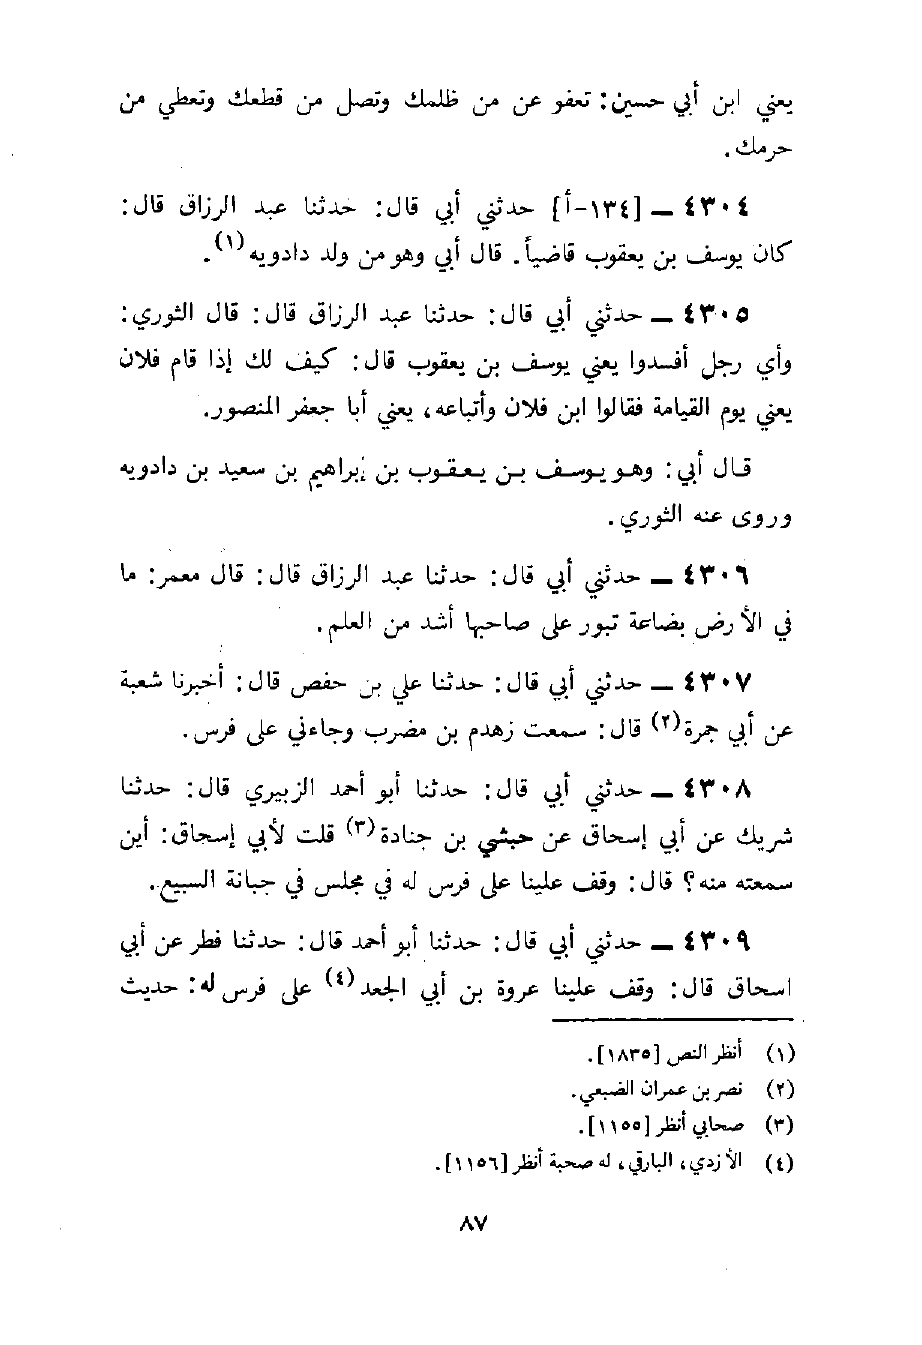 يعني ابن أبي حسين: تعفو عن من ظلمك وتصل من قطعك وتعطي من
حرمك.
٤٣٠٤ ــ [١٣٤-أ] حدثني أبي قال: حدثنا عبد الرزاق قال:
كان يوسف بن يعقوب قاضياً. قال أبي وهو من ولد داذويه(١).
٤٣٠٥ ــ حدثني أبي قال: حدثنا عبد الرزاق قال: قال الثوري:
وأي رجل أفسدوا يعني يوسف بن يعقوب قال: كيف لك إذا قام فلان
يعني يوم القيامة فقالوا ابن فلان وأتباعه، يعني أبا جعفر المنصور.
قال أبي: وهو يوسف بن يعقوب بن إبراهيم بن سعيد بن دادويه
وروى عنه الثوري.
٤٣٠٦ ــ حدثني أبي قال: حدثنا عبد الرزاق قال: قال معمر: ما
في الأرض بضاعة تبور على صاحبها أشد من العلم.
٤٣٠٧ ــ حدثني أبي قال: حدثنا علي بن حفص قال: أخبرنا شعبة
عن أبي جمرة(٢) قال: سمعت زهدم بن مضرب وجاءني على فرس.
٤٣٠٨ ــ حدثني أبي قال: حدثنا أبو أحمد الزبيري قال: حدثنا
شريك عن أبي إسحاق عن حبشي بن جنادة(٣) قلت لأبي إسحاق: أين
سمعته منه؟ قال: وقف علينا على فرس له في مجلس في جبانة السبيع.
٤٣٠٩ ــ حدثني أبي قال: حدثنا أبو أحمد قال: حدثنا فطر عن أبي
اسحاق قال: وقف علينا عروة بن أبي الجعد(٤) على فرس له: حديث
(١) أنظر النص [١٨٣٥].
(٢) نصر بن عمران الضبعي.
(٣) صحابي أنظر [١١٥٥].
(٤) الأزدي، البارقي، له صحبة أنظر [١١٥٦].
٨٧